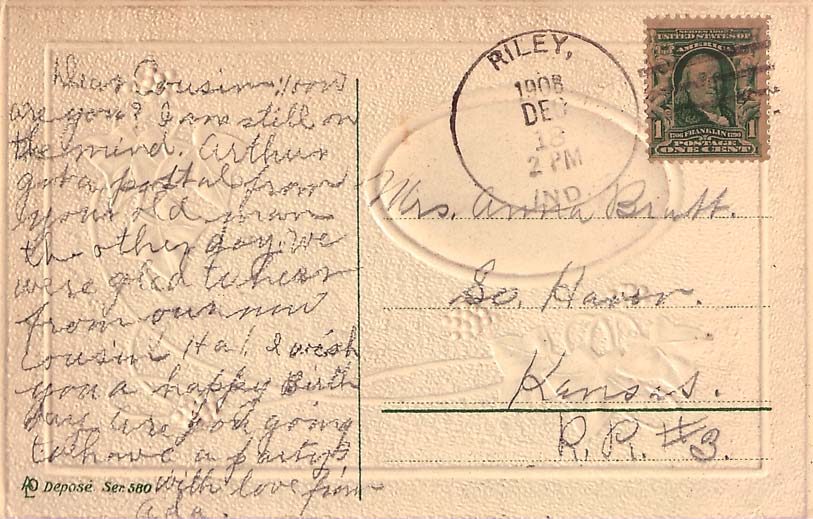 Dear Cousin: How
are you? I am still on
the mind. Arthur
got a postal from
your old man
the other day. We
were gled to hear
from our new
cousin Ha! I wish
you a happy Birth
day. Are you going
to have a party?
with love from
RILEY,
1908
DEC
18
2 PM
IND.
SERIES 1902
UNITED STATES OF
AMERICA
1 1706 FRANKLIN 1790 1
POSTAGE
ONE CENT
Mrs. Anna Bratt.
So. Haven.
Kansas.
R. R. #3.
Deposé Ser. 580